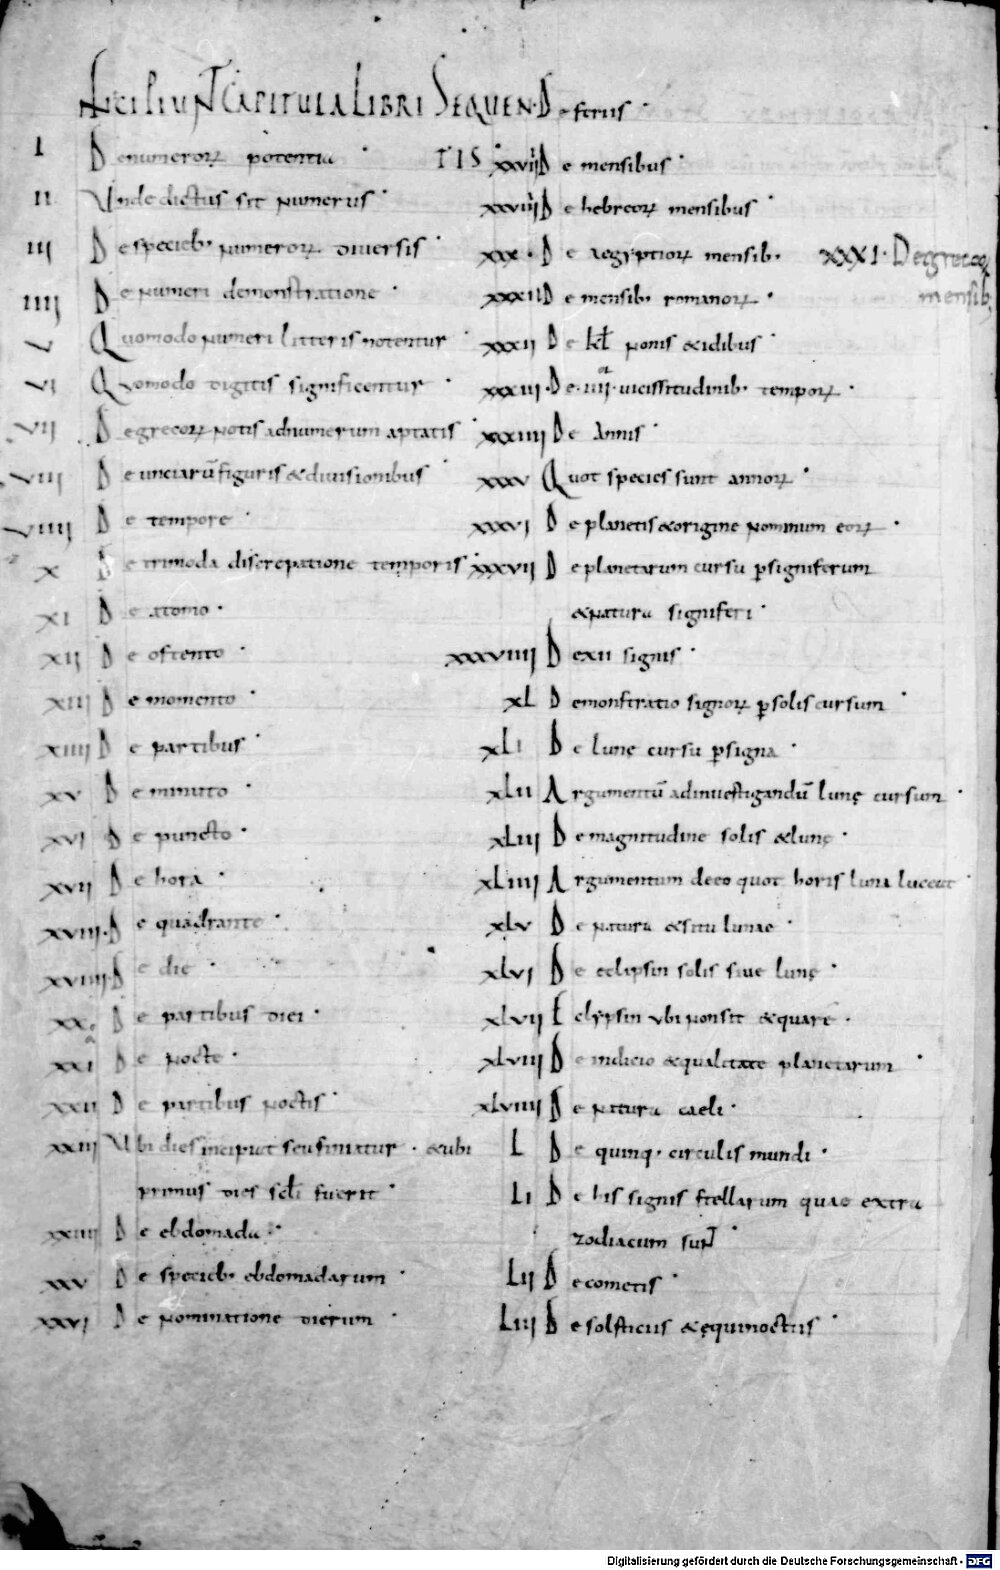 INCIPIUNT CAPITULA LIBRI SEQUENTIS
I De numeroꝝ potentia
II Unde dictus sit numerus
III De specieb; numeroꝝ diversis
IIII De numeri demonstratione
V Quomodo numeri litteris notentur
VI Quomodo digitis significentur
VII De grecoꝝ notis ad numerum aptatis
VIII De unciarū figuris & divisionibus
VIIII De tempore
X De trimoda discrepatione temporis
XI De atomo
XII De ostento
XIII De momento
XIIII De partibus
XV De minuto
XVI De puncto
XVII De hora
XVIII De quadrante
XVIIII De die
XX De partibus diei
XXI De nocte
XXII De partibus noctis
XXIII Ubi dies incipiat seu finiatur & ubi
primus dies scłi fuerit
XXIIII De ebdomada
XXV De specieb; ebdomadarum
XXVI De nominatione dierum
De feriis
XXVIII De mensibus
XXVIIII De hebreoꝝ mensibus
XXX De aegyptioꝝ mensib;
XXXI De grecoꝝ
mensib;
XXXII De mensib; romanoꝝ
XXXII De kƚ nonis & idibus
XXXIII De IIII or vicissitudinib; tempoꝝ
XXXIIII De Annis
XXXV Quot species sunt annoꝝ
XXXVI De planetis & origine nominum eoꝝ
XXXVII De planetarum cursu ꝑ signiferum
& natura signiferi
XXXVIIII De XII signis
XL Demonstratio signoꝝ ꝑ solis cursum
XLI De lunę cursu ꝑ signa
XLII Argumentū ad investigandū lunę cursum
XLIII De magnitudine solis & lunę
XLIIII Argumentum de eo quot horis luna luceat
XLV De natura & situ lunae
XLVI De eclipsin solis sive lunę
XLVII Eclypsin ubi non sit & quare
XLVIII De indicio & qualitate planetarum
XLVIIII De natura caeli
L De quinq; circulis mundi
LI De his signis stellarum quae extra
zodiacum sunt
LII De cometis
LIII De solsticiis & ęquinoctiis
Digitalisierung gefördert durch die Deutsche Forschungsgemeinschaft - DFG